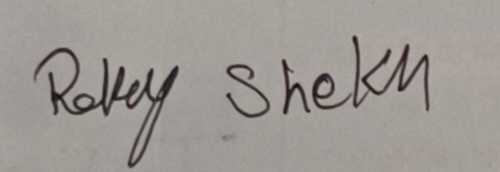 Rokey Shekh